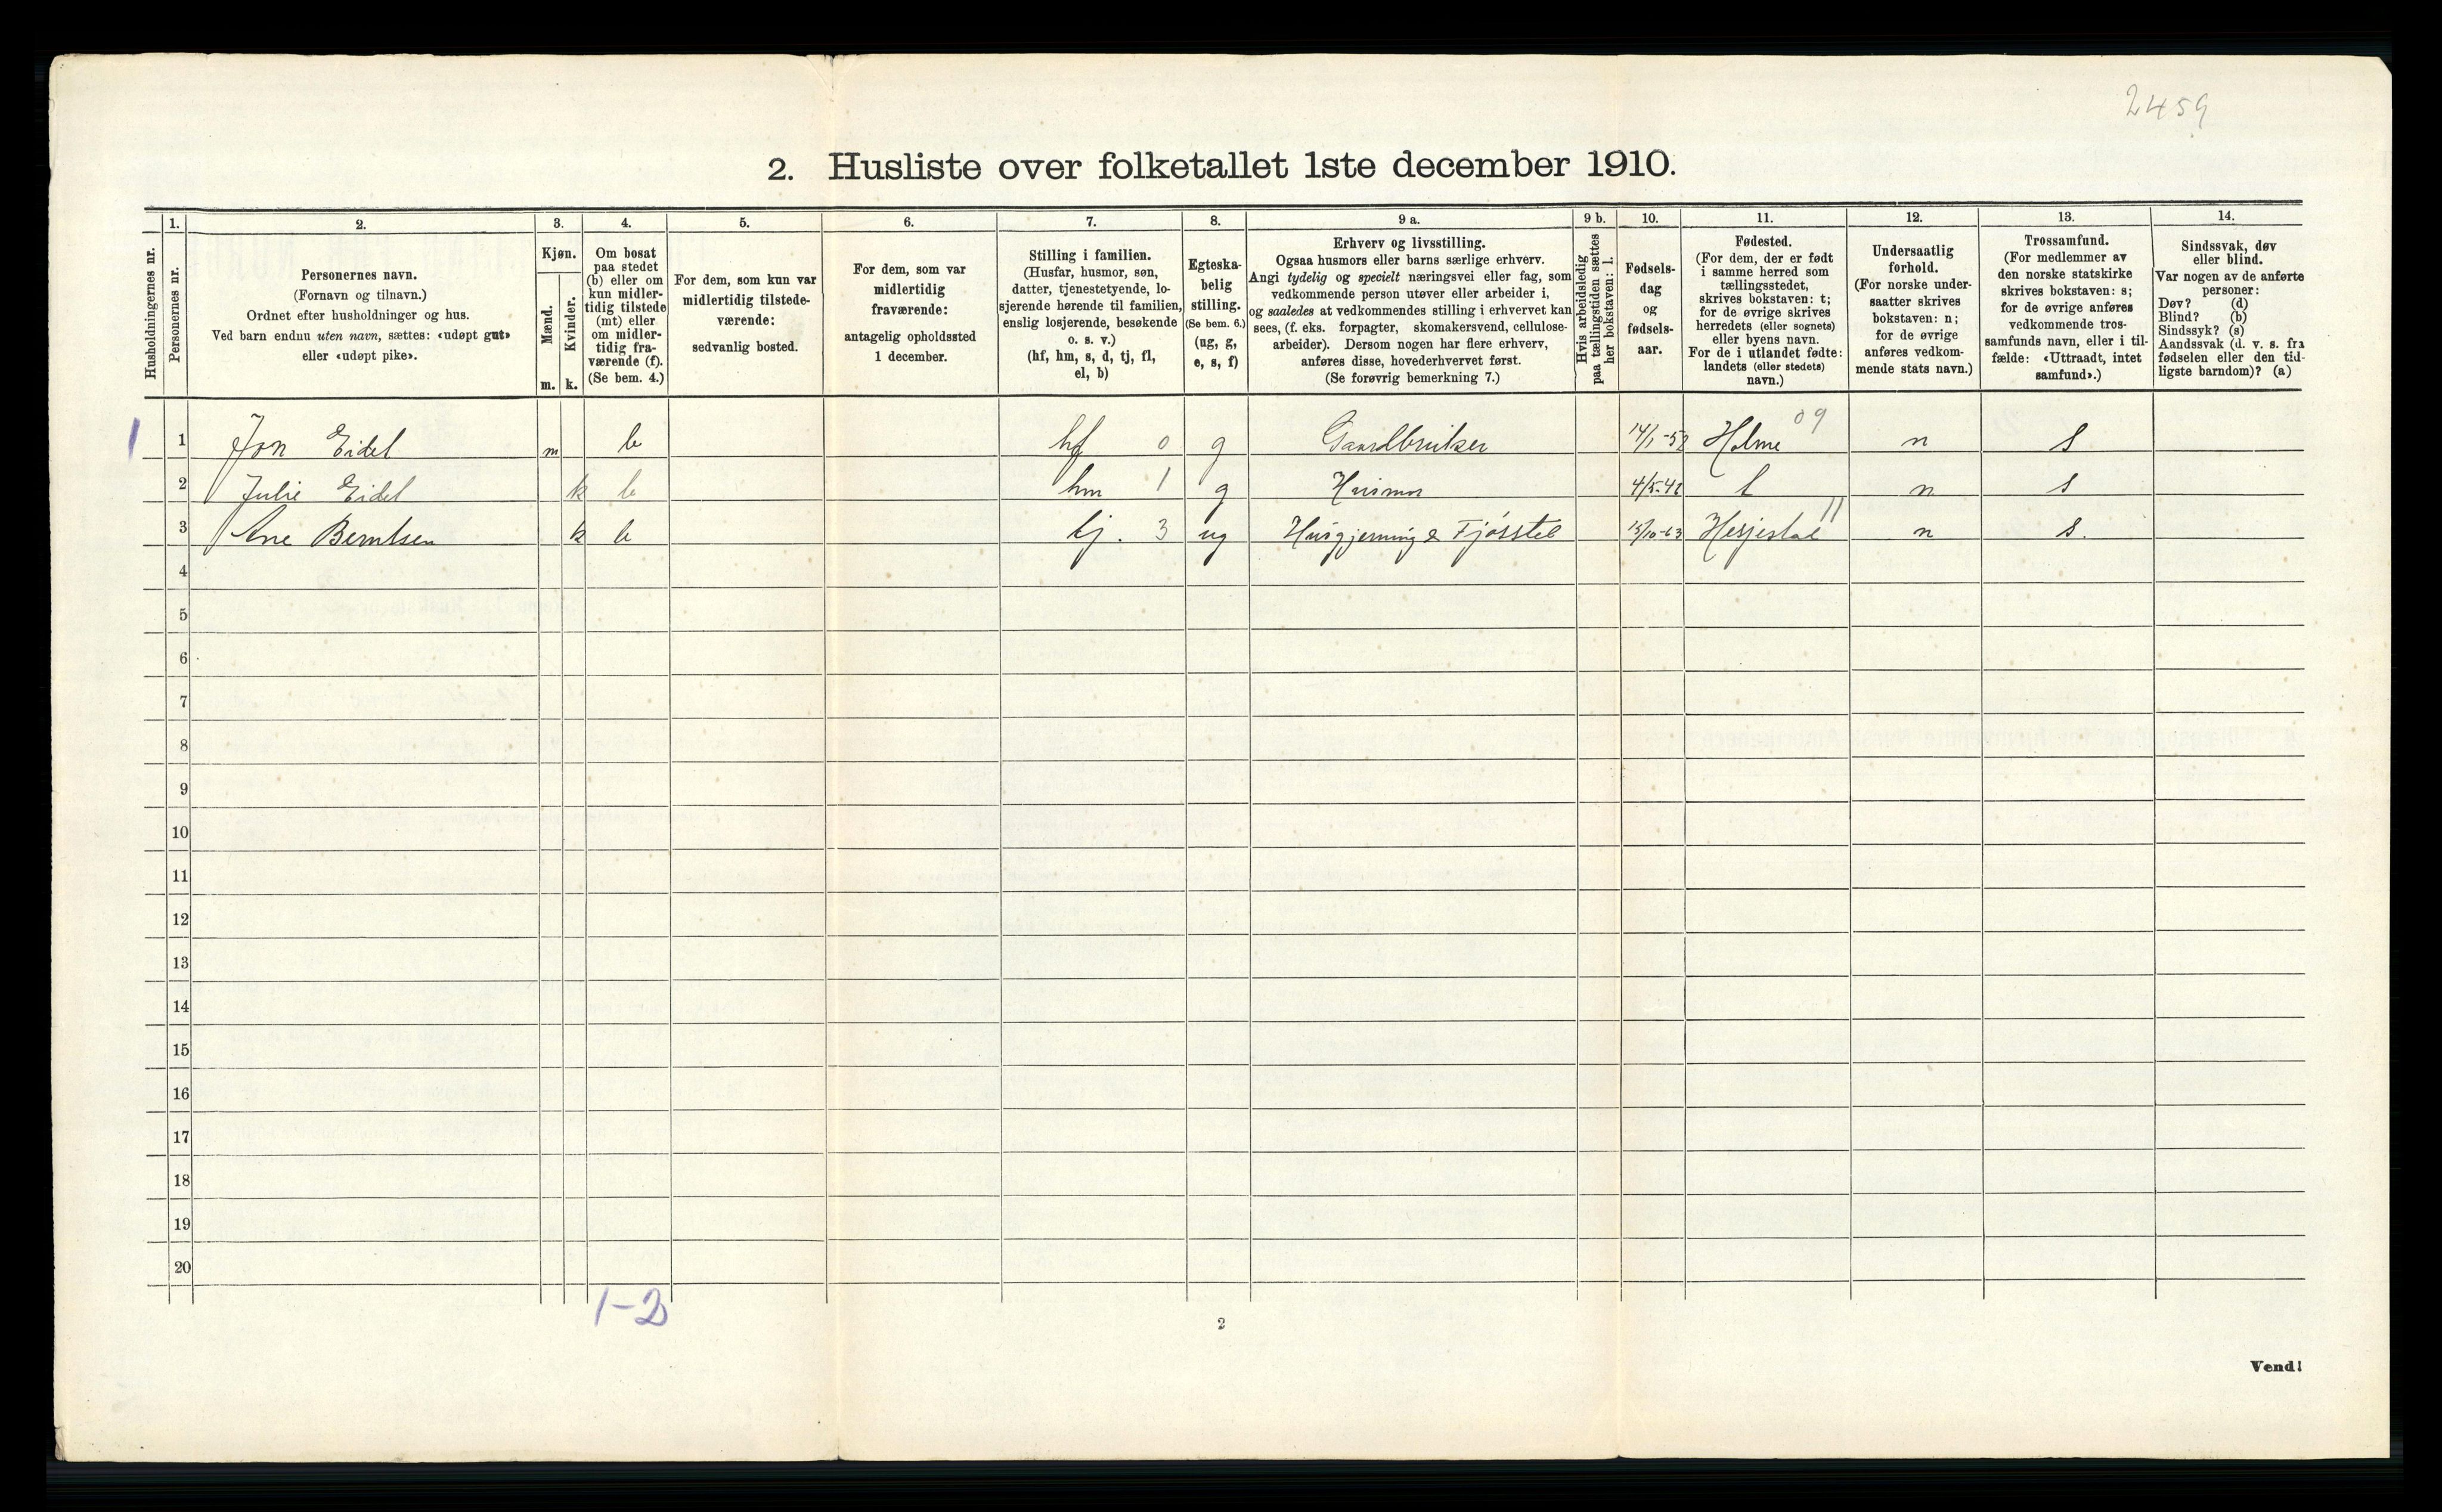 2459
2. Husliste over folketallet 1ste december 1910.
Husholdningernes nr.
1.
Personernes nr.
2.
Personernes navn.
(Fornavn og tilnavn.)
Ordnet efter husholdninger og hus.
Ved barn endnu uten navn, sættes: «udøpt gut»
eller «udøpt pike».
3.
Kjøn.
Mænd.
Kvinder.
m. k.
4.
Om bosat
paa stedet
(b) eller om
kun midler-
tidig tilstede
(mt) eller
om midler-
tidig fra-
værende (f).
(Se bem. 4.)
5.
For dem, som kun var
midlertidig tilstede-
værende:
sedvanlig bosted.
6.
For dem, som var
midlertidig
fraværende:
antagelig opholdssted
1 december.
7.
Stilling i familien.
(Husfar, husmor, søn,
datter, tjenestetyende, lo-
sjerende hørende til familien,
enslig losjerende, besøkende
o. s. v.)
(hf, hm, s, d, tj, fl,
el, b)
8.
Egteska-
belig
stilling.
(Se bem. 6.)
(ug, g,
e, s, f)
9 a.
Erhverv og livsstilling.
Ogsaa husmors eller barns særlige erhverv.
Angi tydelig og specielt næringsvei eller fag, som
vedkommende person utøver eller arbeider i,
og saaledes at vedkommendes stilling i erhvervet kan
sees, (f. eks. forpagter, skomakersvend, cellulose-
arbeider). Dersom nogen har flere erhverv,
anføres disse, hovederhvervet først.
(Se forøvrig bemerkning 7.)
9 b.
Hvis arbeidsledig
paa tællingstiden sættes
her bokstaven: l.
10.
Fødsels-
dag
og
fødsels-
aar.
11.
Fødested.
(For dem, der er født
i samme herred som
tællingsstedet,
skrives bokstaven: t;
for de øvrige skrives
herredets (eller sognets)
eller byens navn.
For de i utlandet fødte:
landets (eller stedets)
navn.)
12.
Undersaatlig
forhold.
(For norske under-
saatter skrives
bokstaven: n;
for de øvrige
anføres vedkom-
mende stats navn.)
13.
Trossamfund.
(For medlemmer av
den norske statskirke
skrives bokstaven: s;
for de øvrige anføres
vedkommende tros-
samfunds navn, eller i til-
fælde: «Uttraadt, intet
samfund».)
14.
Sindssvak, døv
eller blind.
Var nogen av de anførte
personer:
Døv? (d)
Blind? (b)
Sindssyk? (s)
Aandssvak (d. v. s. fra
fødselen eller den tid-
ligste barndom)? (a)
1 1 Jon Eidet m b hf 0 g Gaardbruker 14/1-52 Holme 09 n s
2 Julie Eidet k b hm 1 g Husmor t n s
3 Ane Berntsen k b tj. 3 ug Husgjerning & Fjøsstel 15/10-63 11 n s.
4
5
6
7
8
9
10
11
12
13
14
15
16
17
18
19
20
1-2
2
Vend!